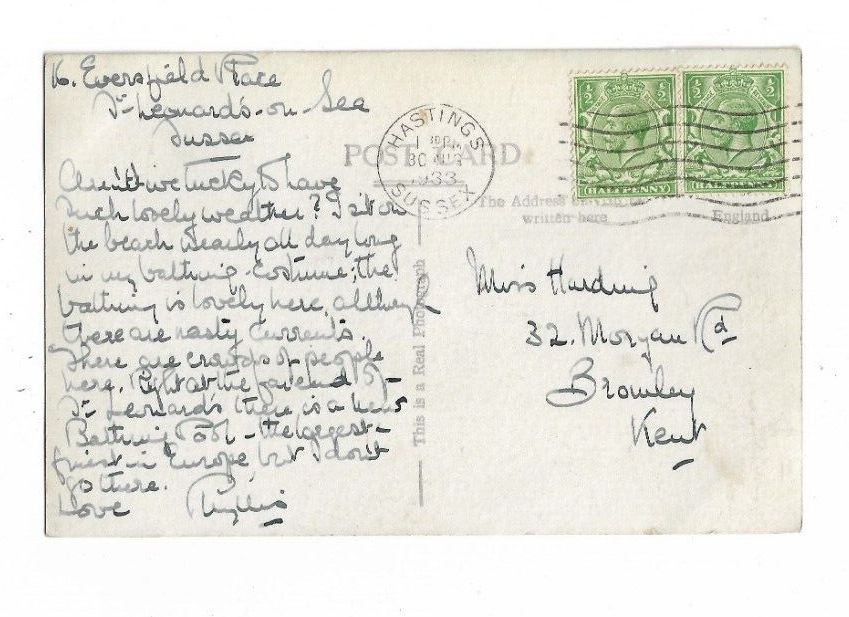 Eversfield Place
St Leonard's-on-Sea
Sussex
Aren't we lucky to have
such lovely weather? I sit on
the beach nearly all day long
in my bathing-costume; the
bathing is lovely here, although
there are nasty currents.
There are crowds of people
here. Right at the far end of
St Leonard's there is a new
Bathing Pool - the largest &
finest in Europe, but I don't
go there.
Love Phyllis
POST CARD
The Address
written here
England
This is a Real Photograph
HASTINGS
1 PM
30 AUG
1933
SUSSEX
½ ½
HALFPENNY
½ ½
HALFPENNY
Miss Harding
32. Morgan Rd
Bromley
Kent